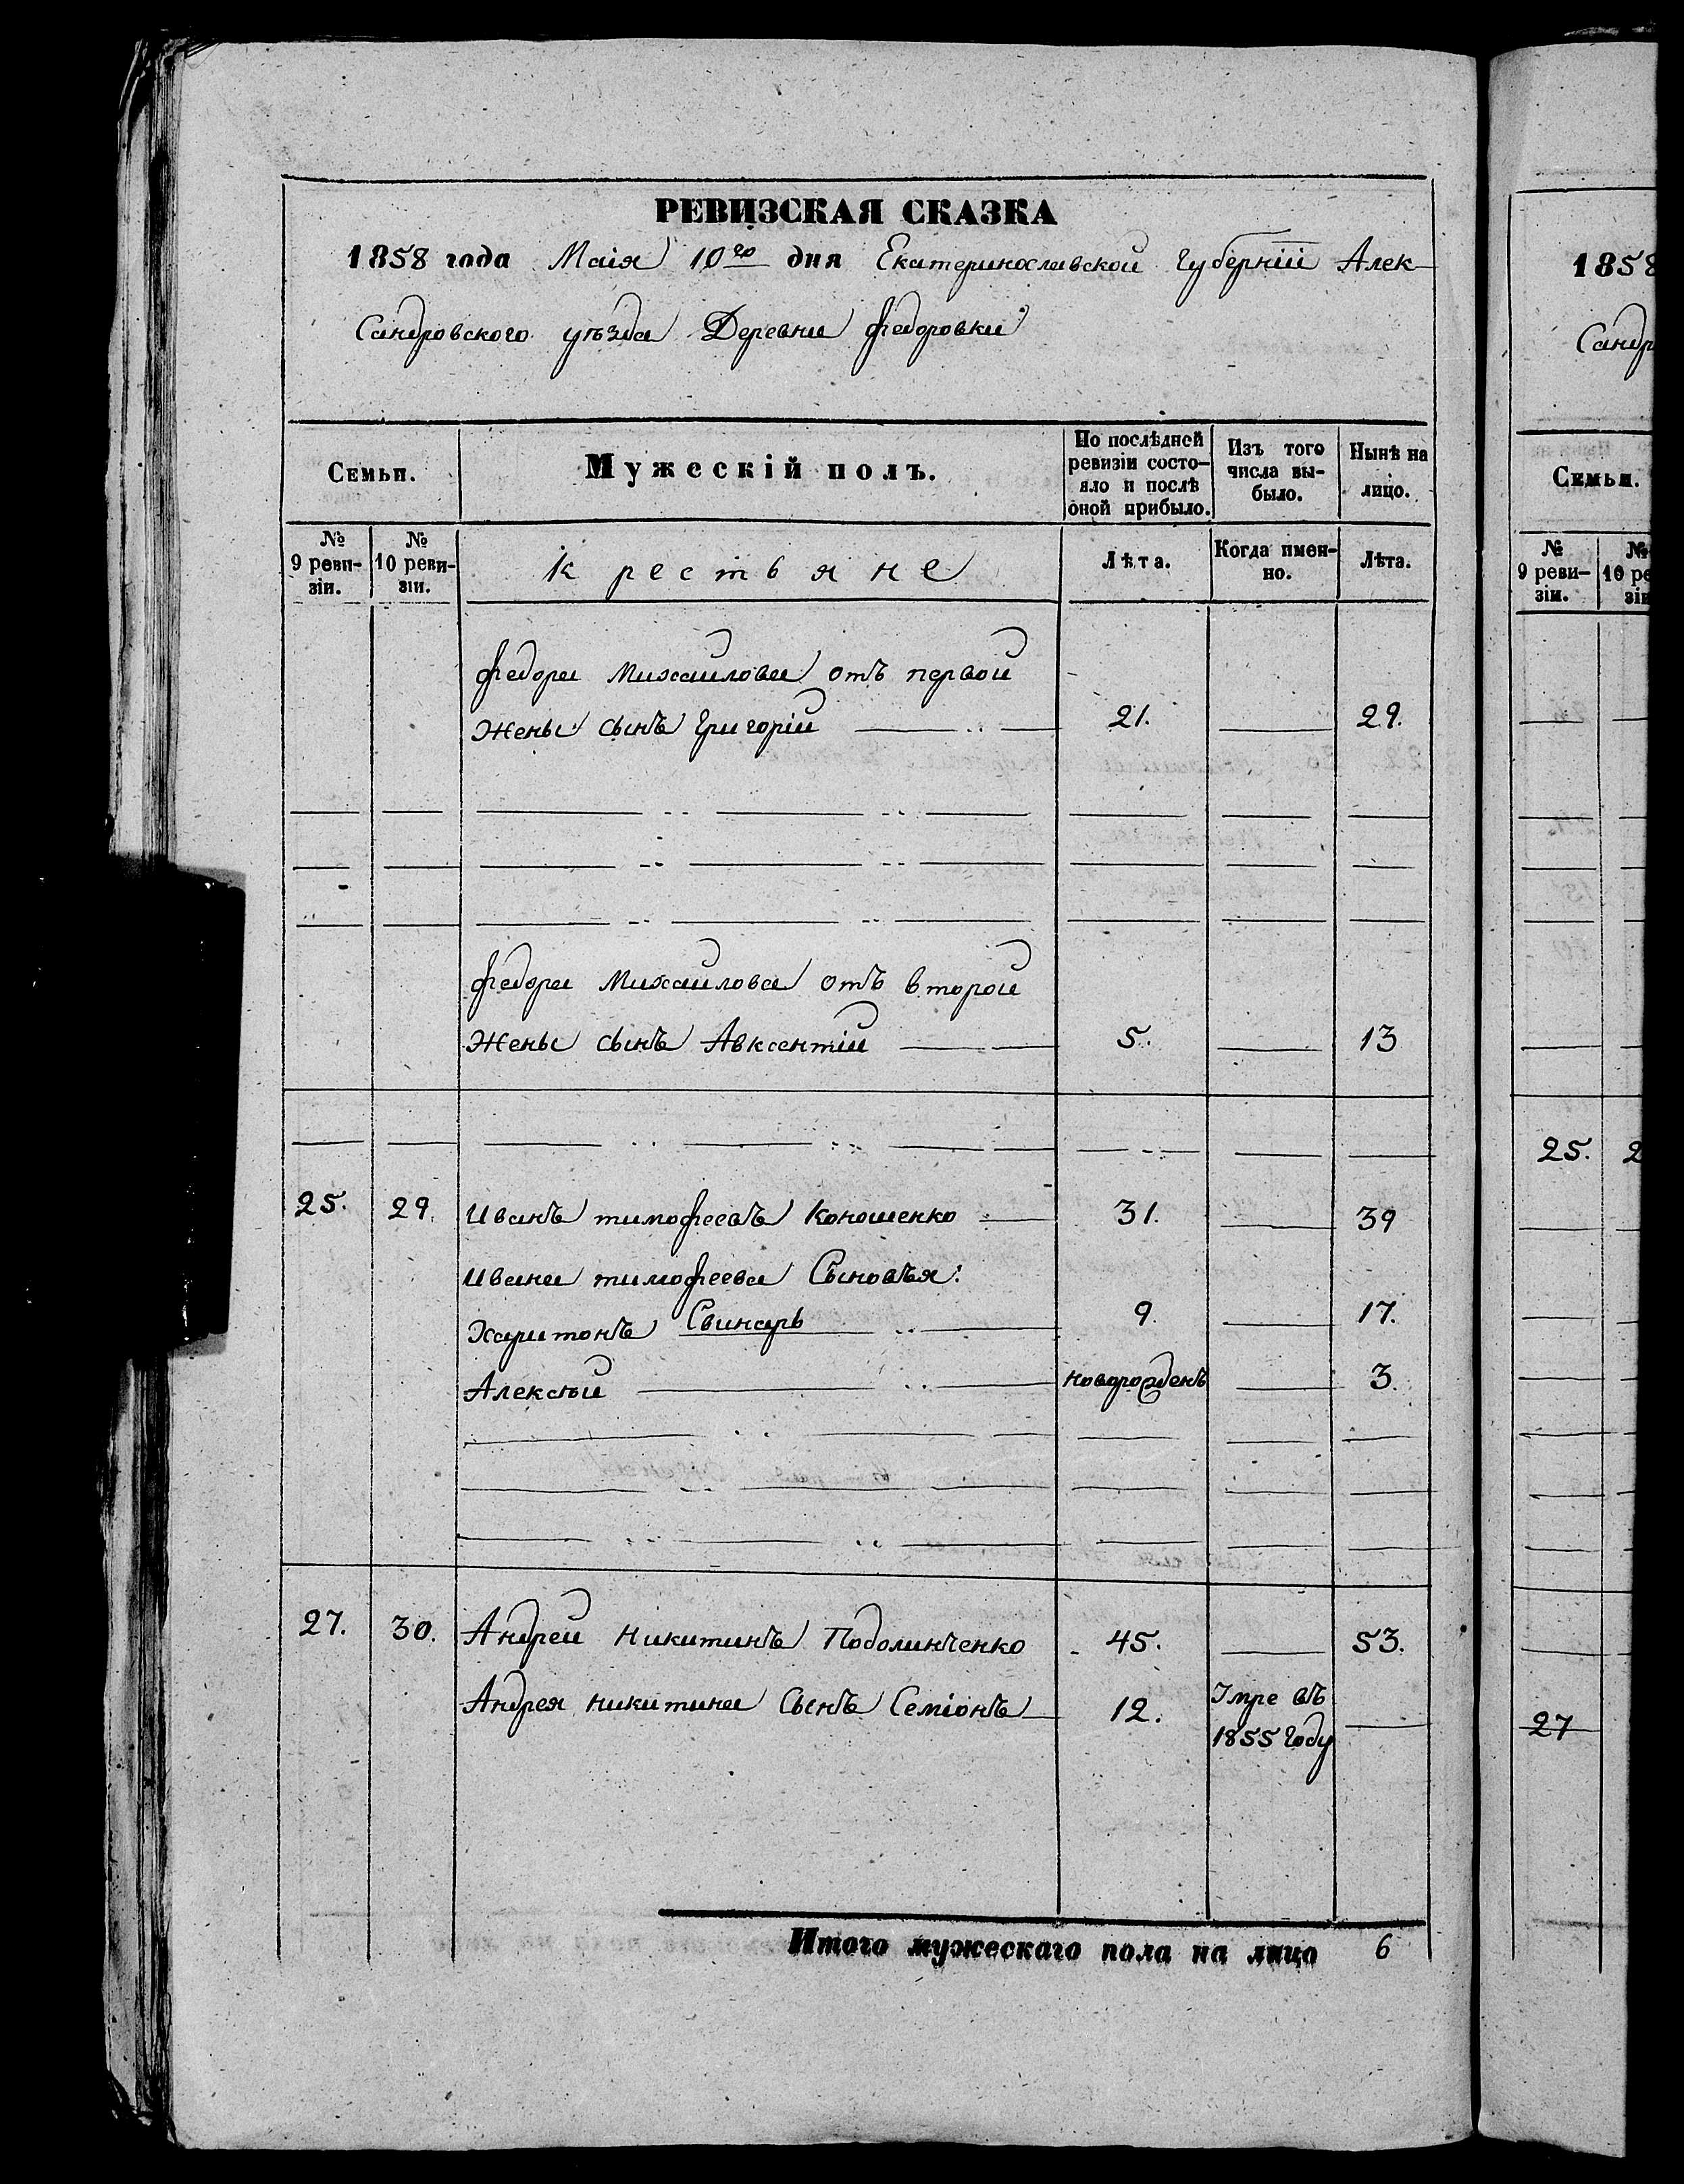 РЕВИЗСКАЯ СКАЗКА
1858 года Маія 10го дня Екатеринославской Губерніи Алек-
сандровского уѣзда Деревни Федоровки
Семьи.
Мужескій полъ.
По послѣдней ревизіи состо-
яло и послѣ оной прибыло.
Изъ того числа вы-
было.
Нынѣ на лицо.
№ 9 реви-
зіи.
№ 10 реви-
зіи.
Крестьяне
Лѣта.
Когда имен-
но.
Лѣта.
Федора Михайлова отъ первой
жены сынъ Григорій 21. 29.
Федора Михайлова отъ второй
жены сынъ Авксентій 5. 13
25. 29. Иванъ Тимофеевъ Коношенко 31. 39
Ивана Тимофеева Сыновъя:
Харитонъ Свинарь 9. 17.
Алексѣй новорожденъ 3.
27. 30. Андрей Никитинъ Подолинченко 45. 53.
Андрея Никитина Сынъ Семіонъ 12. Умре въ
1855 году
Итого мужескаго пола на лицо 6
1858
Сандр
Семьи.
№ 9 реви-
зіи.
25. 2
27